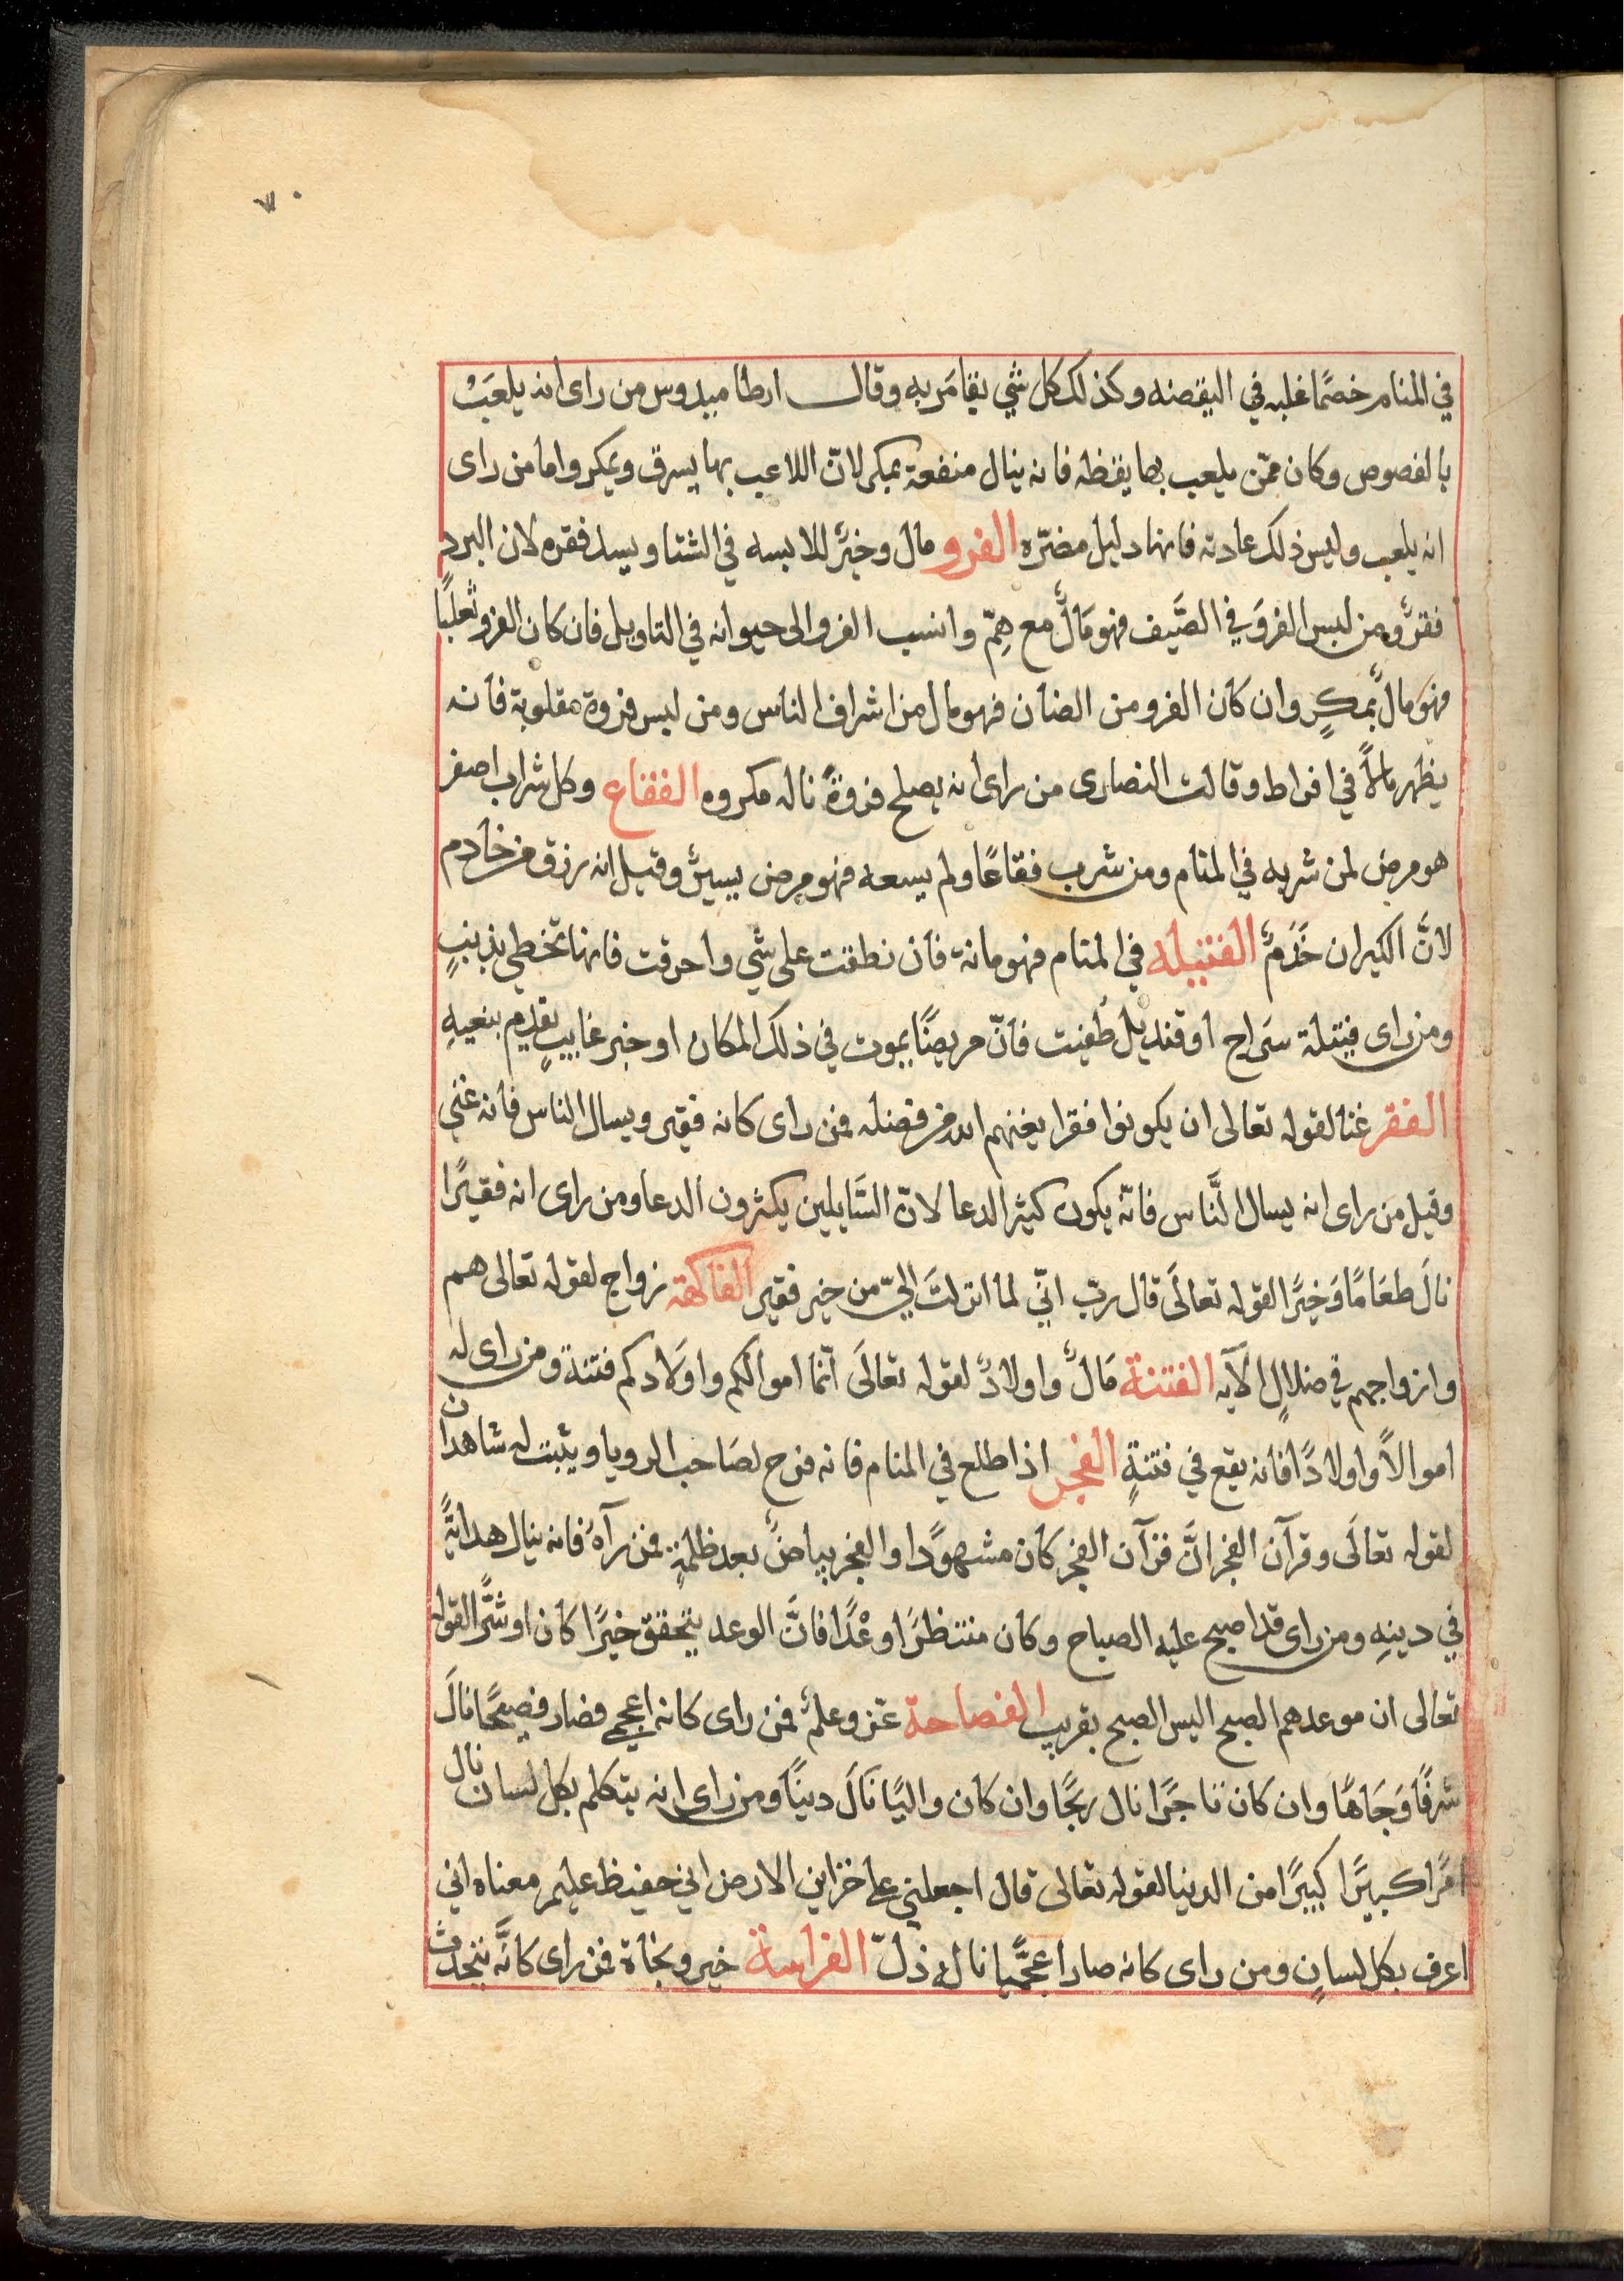 في المنام خصمًا غلبه في اليقضه وكذلك كل شي يقامَر به وقال ارطاميدوس من راى انه يلعَبْ
بالفصوص وكان ممّن يلعب بها يقظه فانه ينال منفعة بمكر لانّ اللاعب بها يسرق ويمكر واما من راى
انه يلعب وليس ذلك عادته فانها دليل مضرّه الفرو مال وخيرٌ للابسه في الشتا ويسد فقره لان البرد
فقرٌ ومن لبس الفروَ في الصَّيف فهو مَالٌ مع هِمّ وانسب الفرو الى حيوانه في التاويل فان كان الفرو ثعلبًا
فهو مالٌ بمكرٍ وان كان الفرو من الضان فهو مال من اشراف الناس ومن لبس فروة مقلوبة فانه
يظهر مالاً في افراط وقالت النصارى من راى انه يصلح فروةً ناله مكروه الفقاع وكل شراب اصفر
هو مرض لمن شربه في المنام ومن شرب فقاعًا ولم يسعه فهو مرض يسيرٌ وقيل انه رزق من خادم
لانَّ الكيران خَدَمٌ الفتيله في المنام قهرمانة فان نطقت على شي واحرقت فانها تخطي بذنبٍ
ومن راى فيتلة سَراج او قنديل طُفيت فانّ مريضًا يموت في ذلك المكان او خبر غاييبٍ يقدم بنعيهِ
الفقر غنا لقوله تعالى ان يكونوا فقرا يغنهم الله من فضله فمن راى كانه فقير ويسال الناس فانه غني
وقيل من راى انه يسال النَّاس فانّه يكون كثير الدعا لانّ السَّايلين يكثرون الدعا ومن راى انه فقيرًا
نالَ طعَامًا وَخيرًا لقوله تعالَى قال ربّ انّي لما انزلتَ اليّ من خير فقير الفاكهة زواج لقوله تعالى هم
وازواجهم في ضلالٍ الآيه الفتنة مَالٌ واولادٌ لقوله تعالَى انّما اموالكم واوَلادكم فتنة ومن راى له
اموالاً واولادًا فانه يقع في فتنةٍ الفجر اذا طلع في المنام فانه فرح لصَاحب الرويا ويثبت له شاهدان
لقوله تعالَى وقرآن الفجر انَّ قرآن الفجر كان مشهودًا والفجر بياضٌ بعد ظلمةٍ فمن رآهُ فانه ينال هدايةً
في دينِه ومن راى قد اصبح عليه الصباح وكان منتظرًا وعْدًا فانَّ الوعد يتحقق خيرًا كان او شرًّا لقوله
تعالى ان موعدهم الصبح اليس الصبح بقريب الفصاحة عز وعلمٌ فمن راى كانه اعجمي فصار فصيحًا نالَ
شرفًا وَجَاهًا وان كان تاجرًا نال ربحًا وان كان واليًا نَالَ دينًا ومن راى انه يتكلم بكل لسان نال
امرًا كبيرًا كبيرًا من الدنيا لقوله تعالى قال اجعلني على خزاين الارض اني حفيظ عليم معناه اني
اعرف بكل لسانٍ ومن راى كانه صار اعجميًّا نال ذلّ الفراسة خير ونجاة فمن راى كانَّه يتحدث